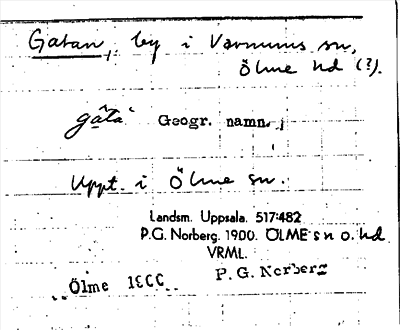 Gatan, by i Varnums sn,
Ölme hd (?).
gåta` Geogr. namn.
Uppt. i Ölme sn.
Landsm. Uppsala. 517:482
P.G. Norberg. 1900. ÖLME sn o. hd
VRML.
Ölme 1900 P. G. Norberg